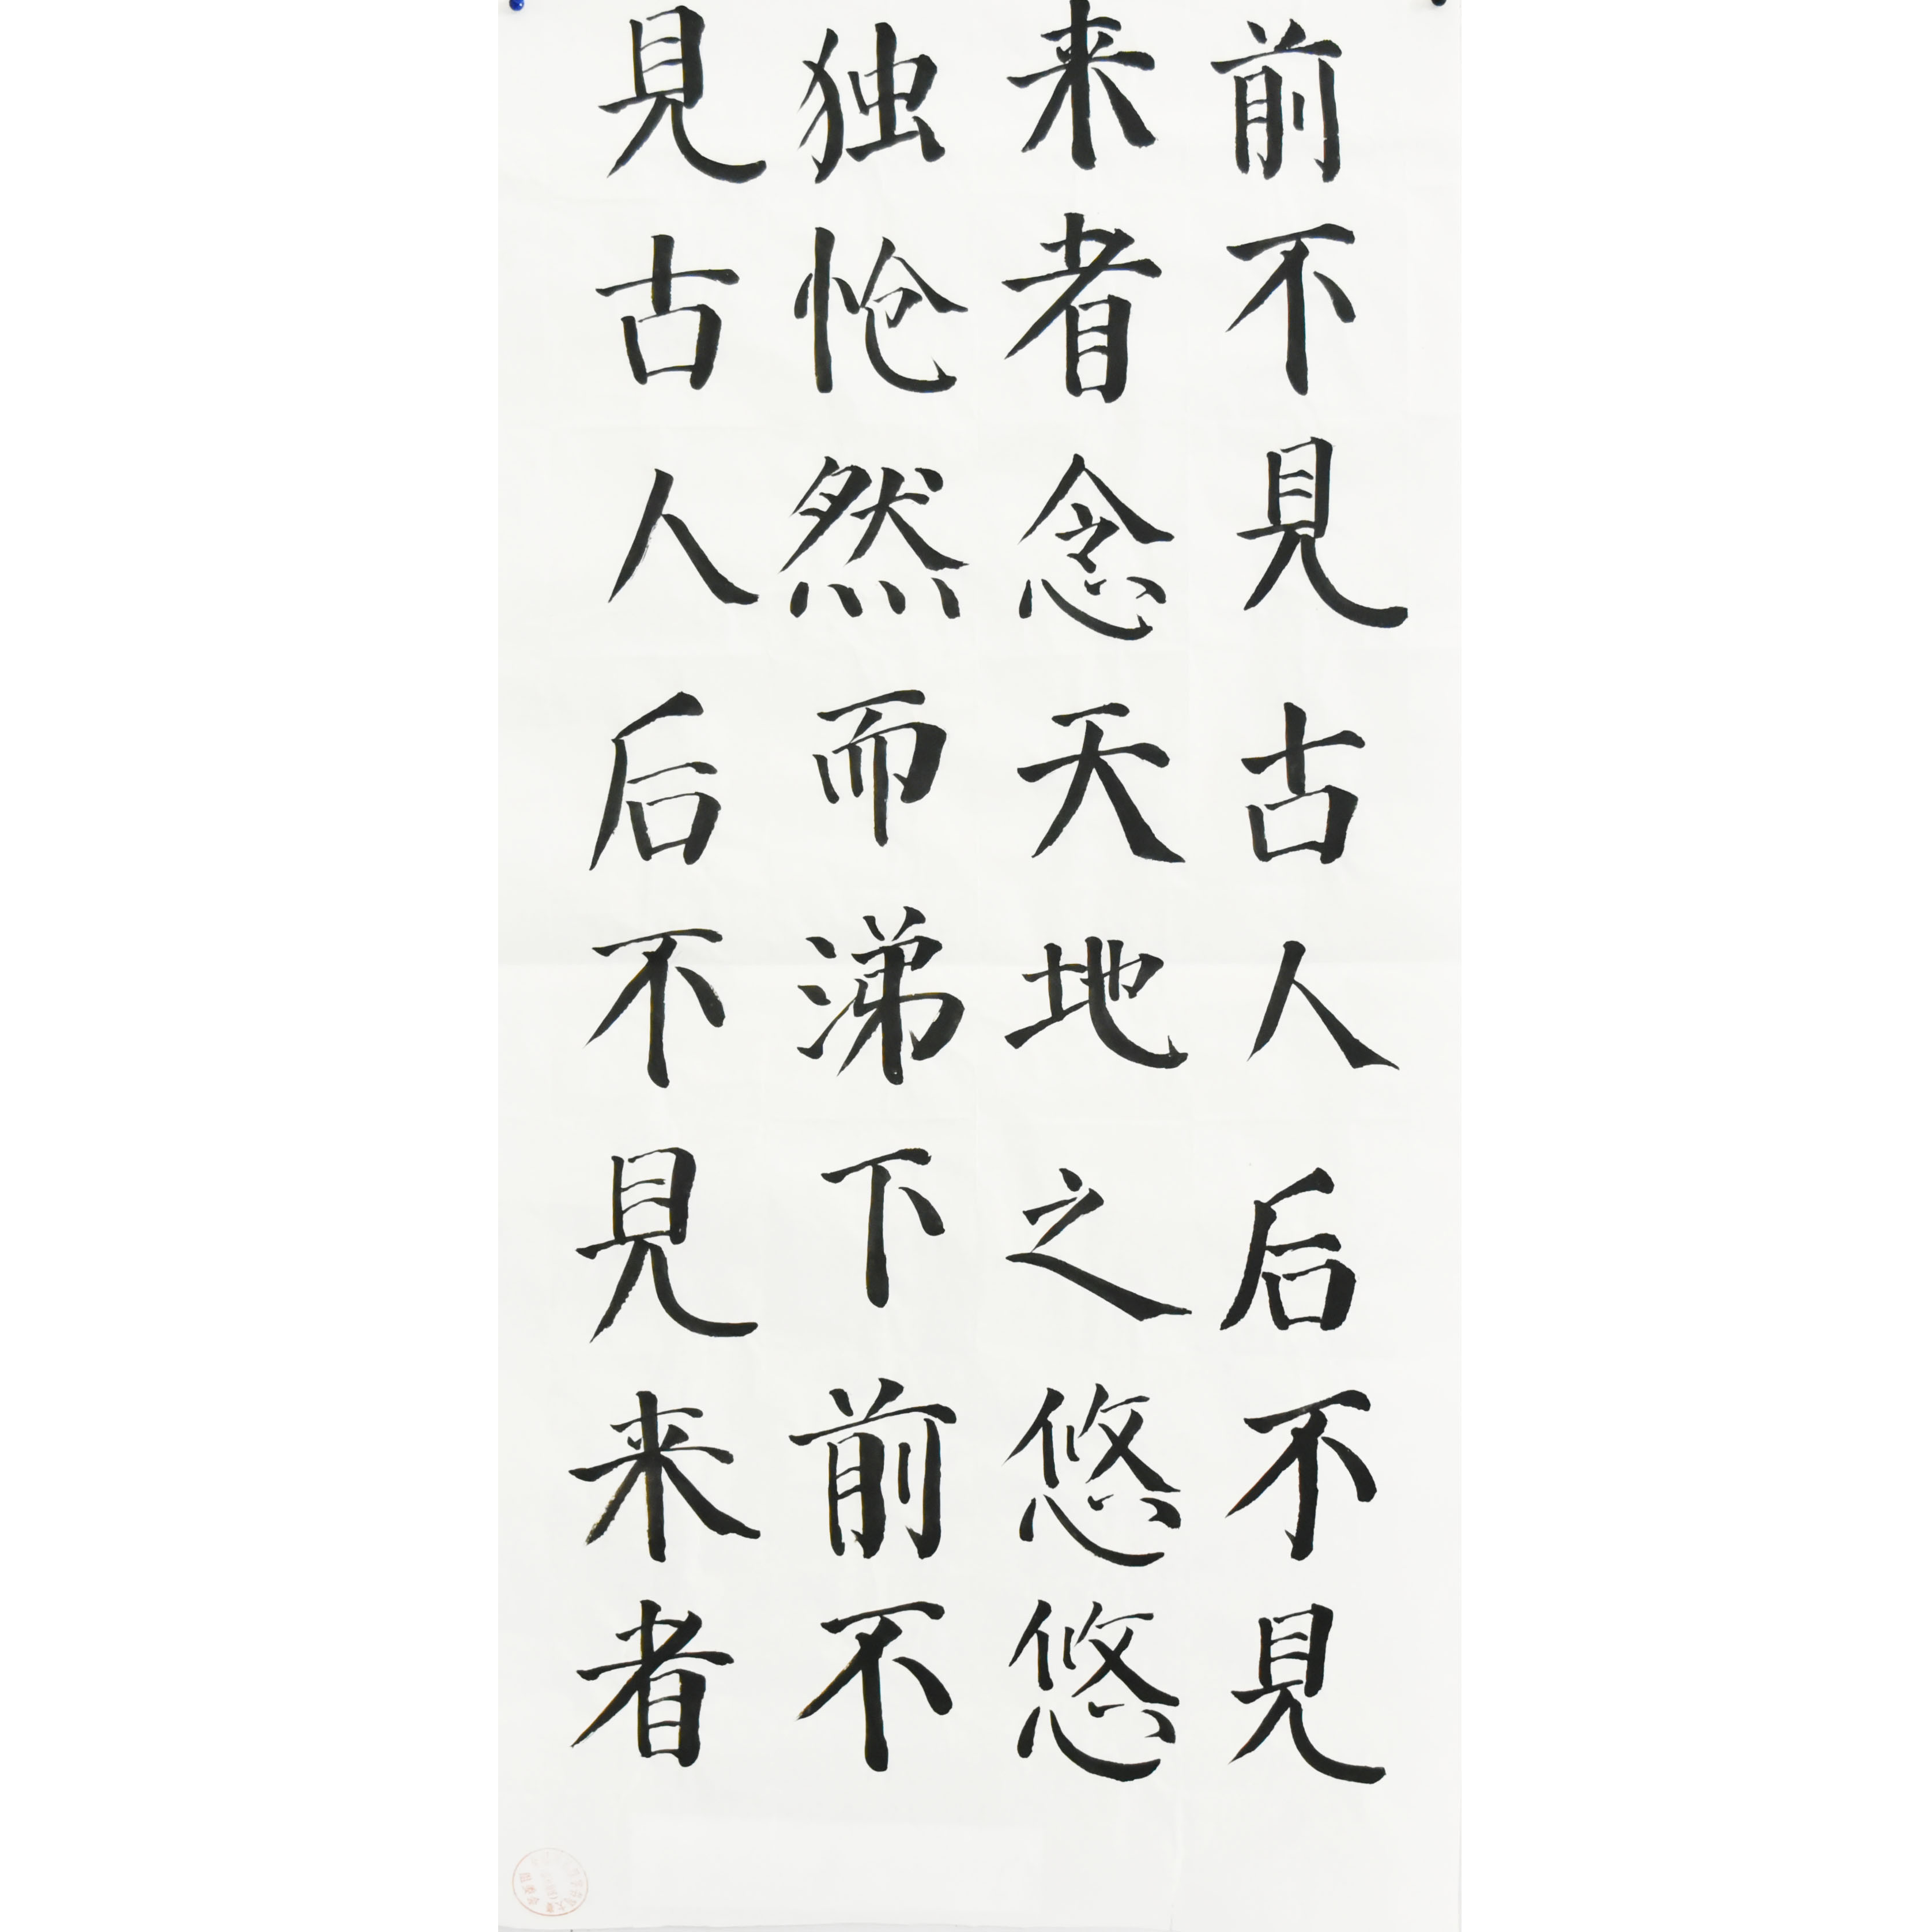 前不見古人后不見
来者念天地之悠悠
独怆然而涕下前不
見古人后不見来者